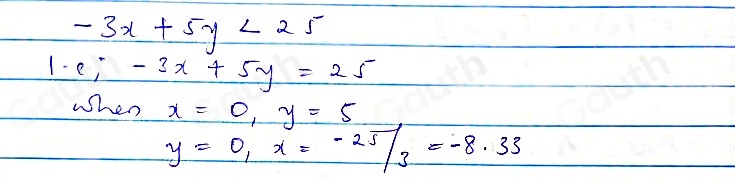 -3x + 5y < 25
1.e; -3x + 5y = 25
when x = 0, y = 5
y = 0, x = -25/3 = -8.33